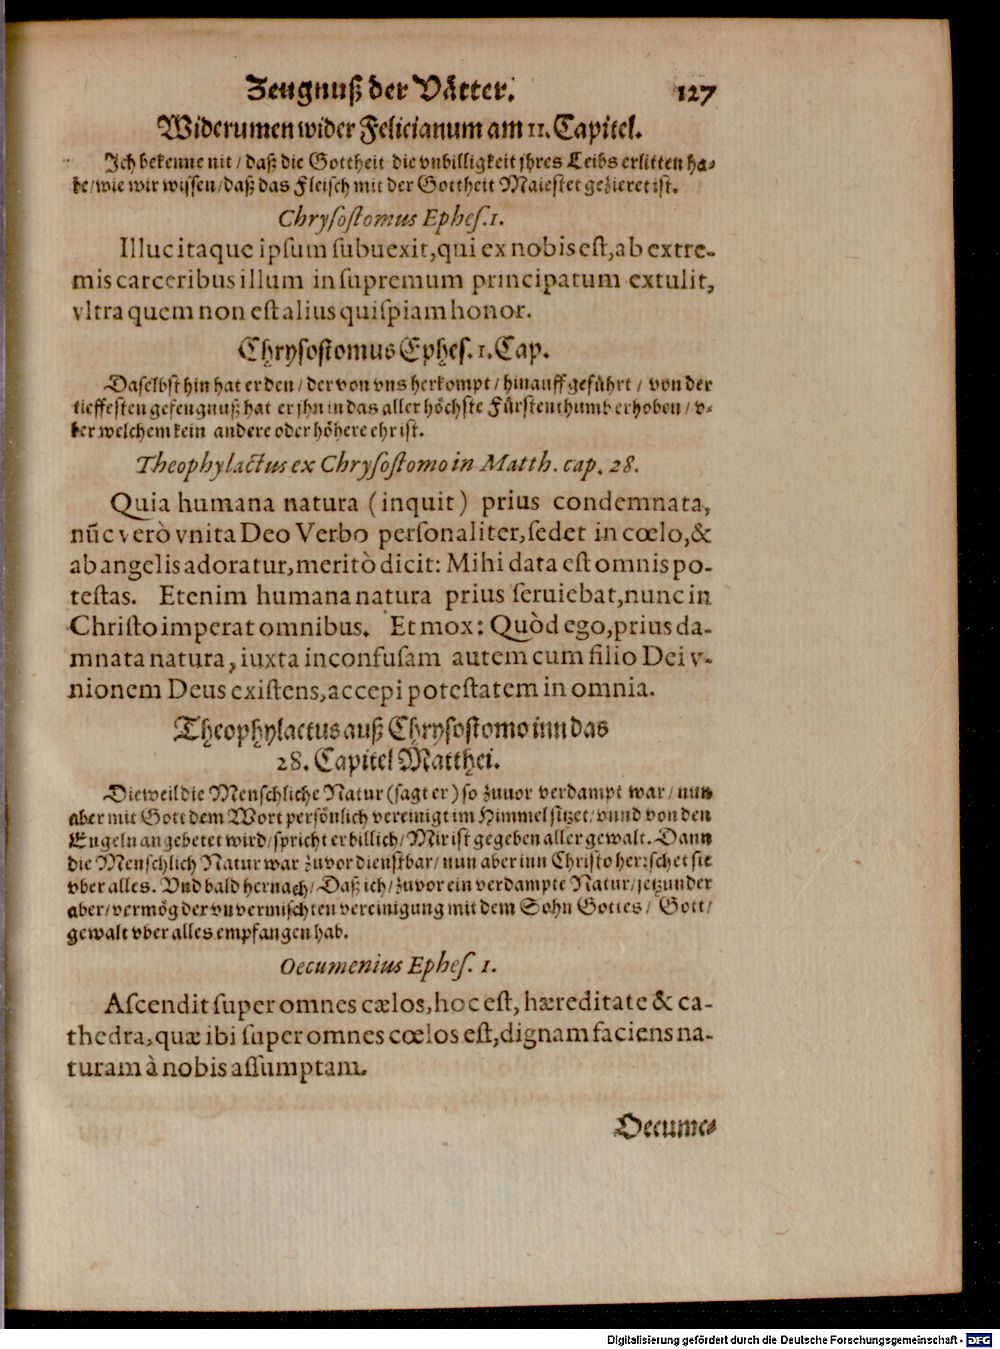 Zeugnuß der Våtter. 127
Widerumen wider Felicianum am 11. Capitel.
Ich bekenne nit / daß die Gottheit die vnbilligkeit jhres Leibs erlitten ha-
be / wie wir wissen / daß das Fleisch mit der Gottheit Maiestet gezieret ist.
Chryſoſtomus Epheſ. 1.
Illuc itaque ipſum ſubuexit, qui ex nobis eſt, ab extre-
mis carceribus illum in ſupremum principatum extulit,
vltra quem non eſt alius quiſpiam honor.
Chryſoſtomus Epheſ. 1. Cap.
Daſelbſt hin hat er den / der von vns herkompt / hinauff gefůhrt / von der
tieffeſten gefengnuß hat er jhn in das aller hőchſte Fůrſtenthumb erhoben / v-
ber welchem kein andere oder hőhere ehr iſt.
Theophylactus ex Chryſoſtomo in Matth. cap. 28.
Quia humana natura (inquit) prius condemnata,
nūc verò vnita Deo Verbo perſonaliter, ſedet in cœlo, &
ab angelis adoratur, meritò dicit: Mihi data eſt omnis po-
teſtas. Etenim humana natura prius ſeruiebat, nunc in
Chriſto imperat omnibus. Et mox: Quòd ego, prius da-
mnata natura, iuxta inconfuſam autem cum filio Dei v-
nionem Deus exiſtens, accepi poteſtatem in omnia.
Theophylactus auß Chryſoſtomo inn das
28. Capitel Matthei.
Dieweil die Menſchliche Natur (ſagt er) ſo zuuor verdampt war / nun
aber mit Gott dem Wort perſőnlich vereinigt im Himmel ſitzet / vnnd von den
Engeln angebetet wird / ſpricht er billich / Mir iſt gegeben aller gewalt. Dann
die Menſchlich Natur war zuvor dienſtbar / nun aber inn Chriſto herꝛſchet ſie
vber alles. Vnd bald hernach / Daß ich / zuvor ein verdampte Natur / jetzunder
aber / vermőg der vnvermiſchten vereinigung mit dem Sohn Gottes / Gott /
gewalt vber alles empfangen hab.
Oecumenius Epheſ. 1.
Aſcendit ſuper omnes cælos, hoc eſt, hæreditate & ca-
thedra, quæ ibi ſuper omnes cœlos eſt, dignam faciens na-
turam à nobis aſſumptam.
Oecume-
Digitalisierung gefördert durch die Deutsche Forschungsgemeinschaft - DFG